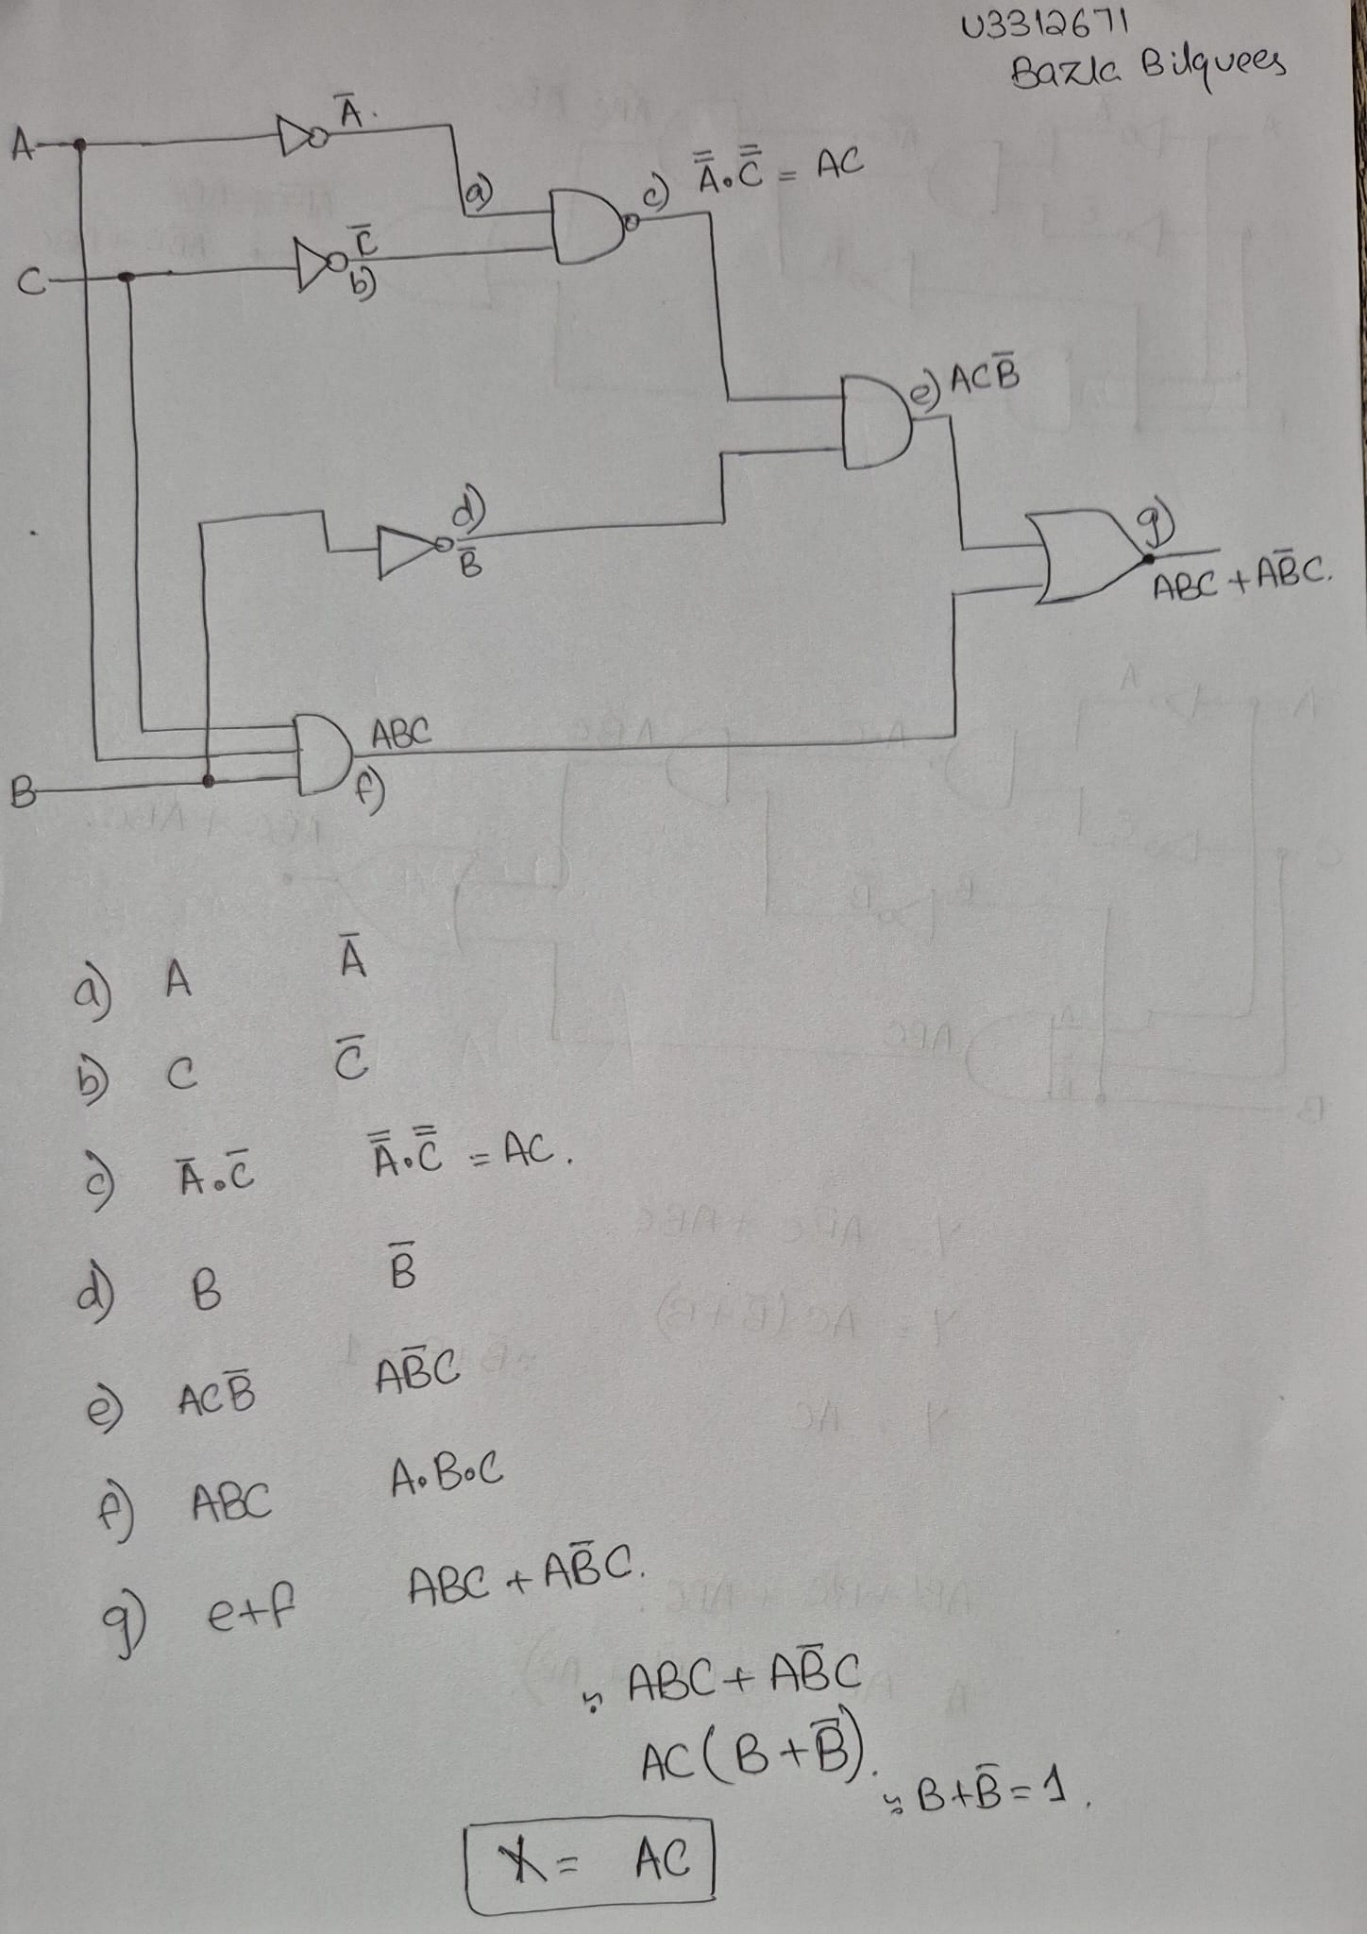 U3312671
Bazla Bilquees
A
A̅.
a)
c) A̿.C̿ = AC
C
C̅
b)
e) ACB̅
d)
B̅
g)
ABC + AB̅C.
ABC
f)
B
a) A A̅
b) C C̅
c) A̅.C̅ A̿.C̿ = AC.
d) B B̅
e) ACB̅ AB̅C
f) ABC A.B.C
g) e+f ABC + AB̅C.
ABC + AB̅C
AC(B + B̅).
B + B̅ = 1.
X = AC